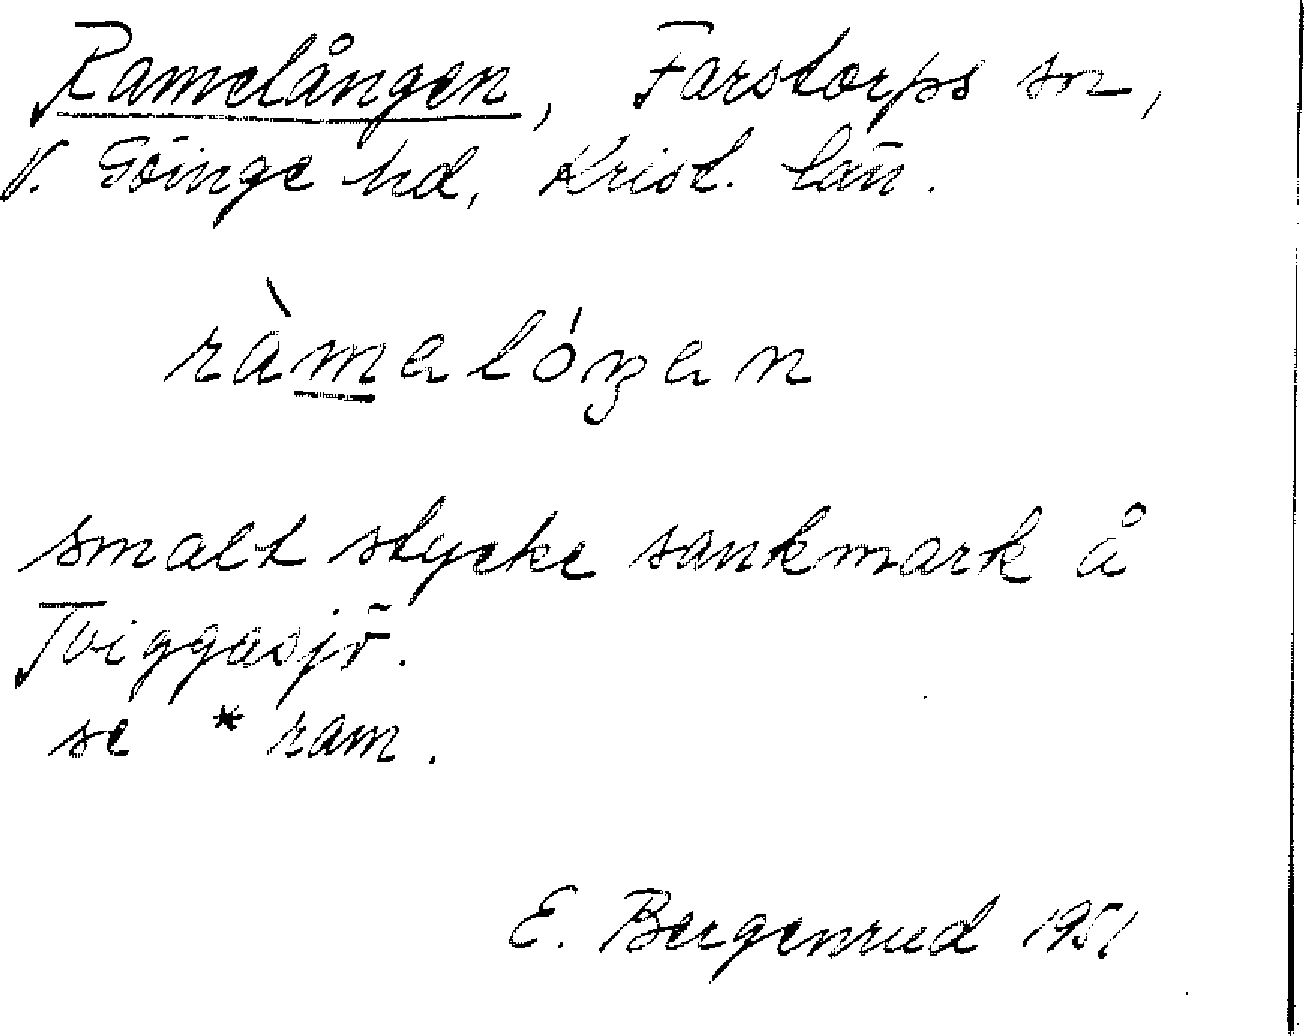 Ramelången, Farstorps sn,
V. Göinge hd, Krist. län.
ràmalóŋan
smalt stycke sankmark å
Tviggasjö.
se * ram.
E. Bergenrud 1951